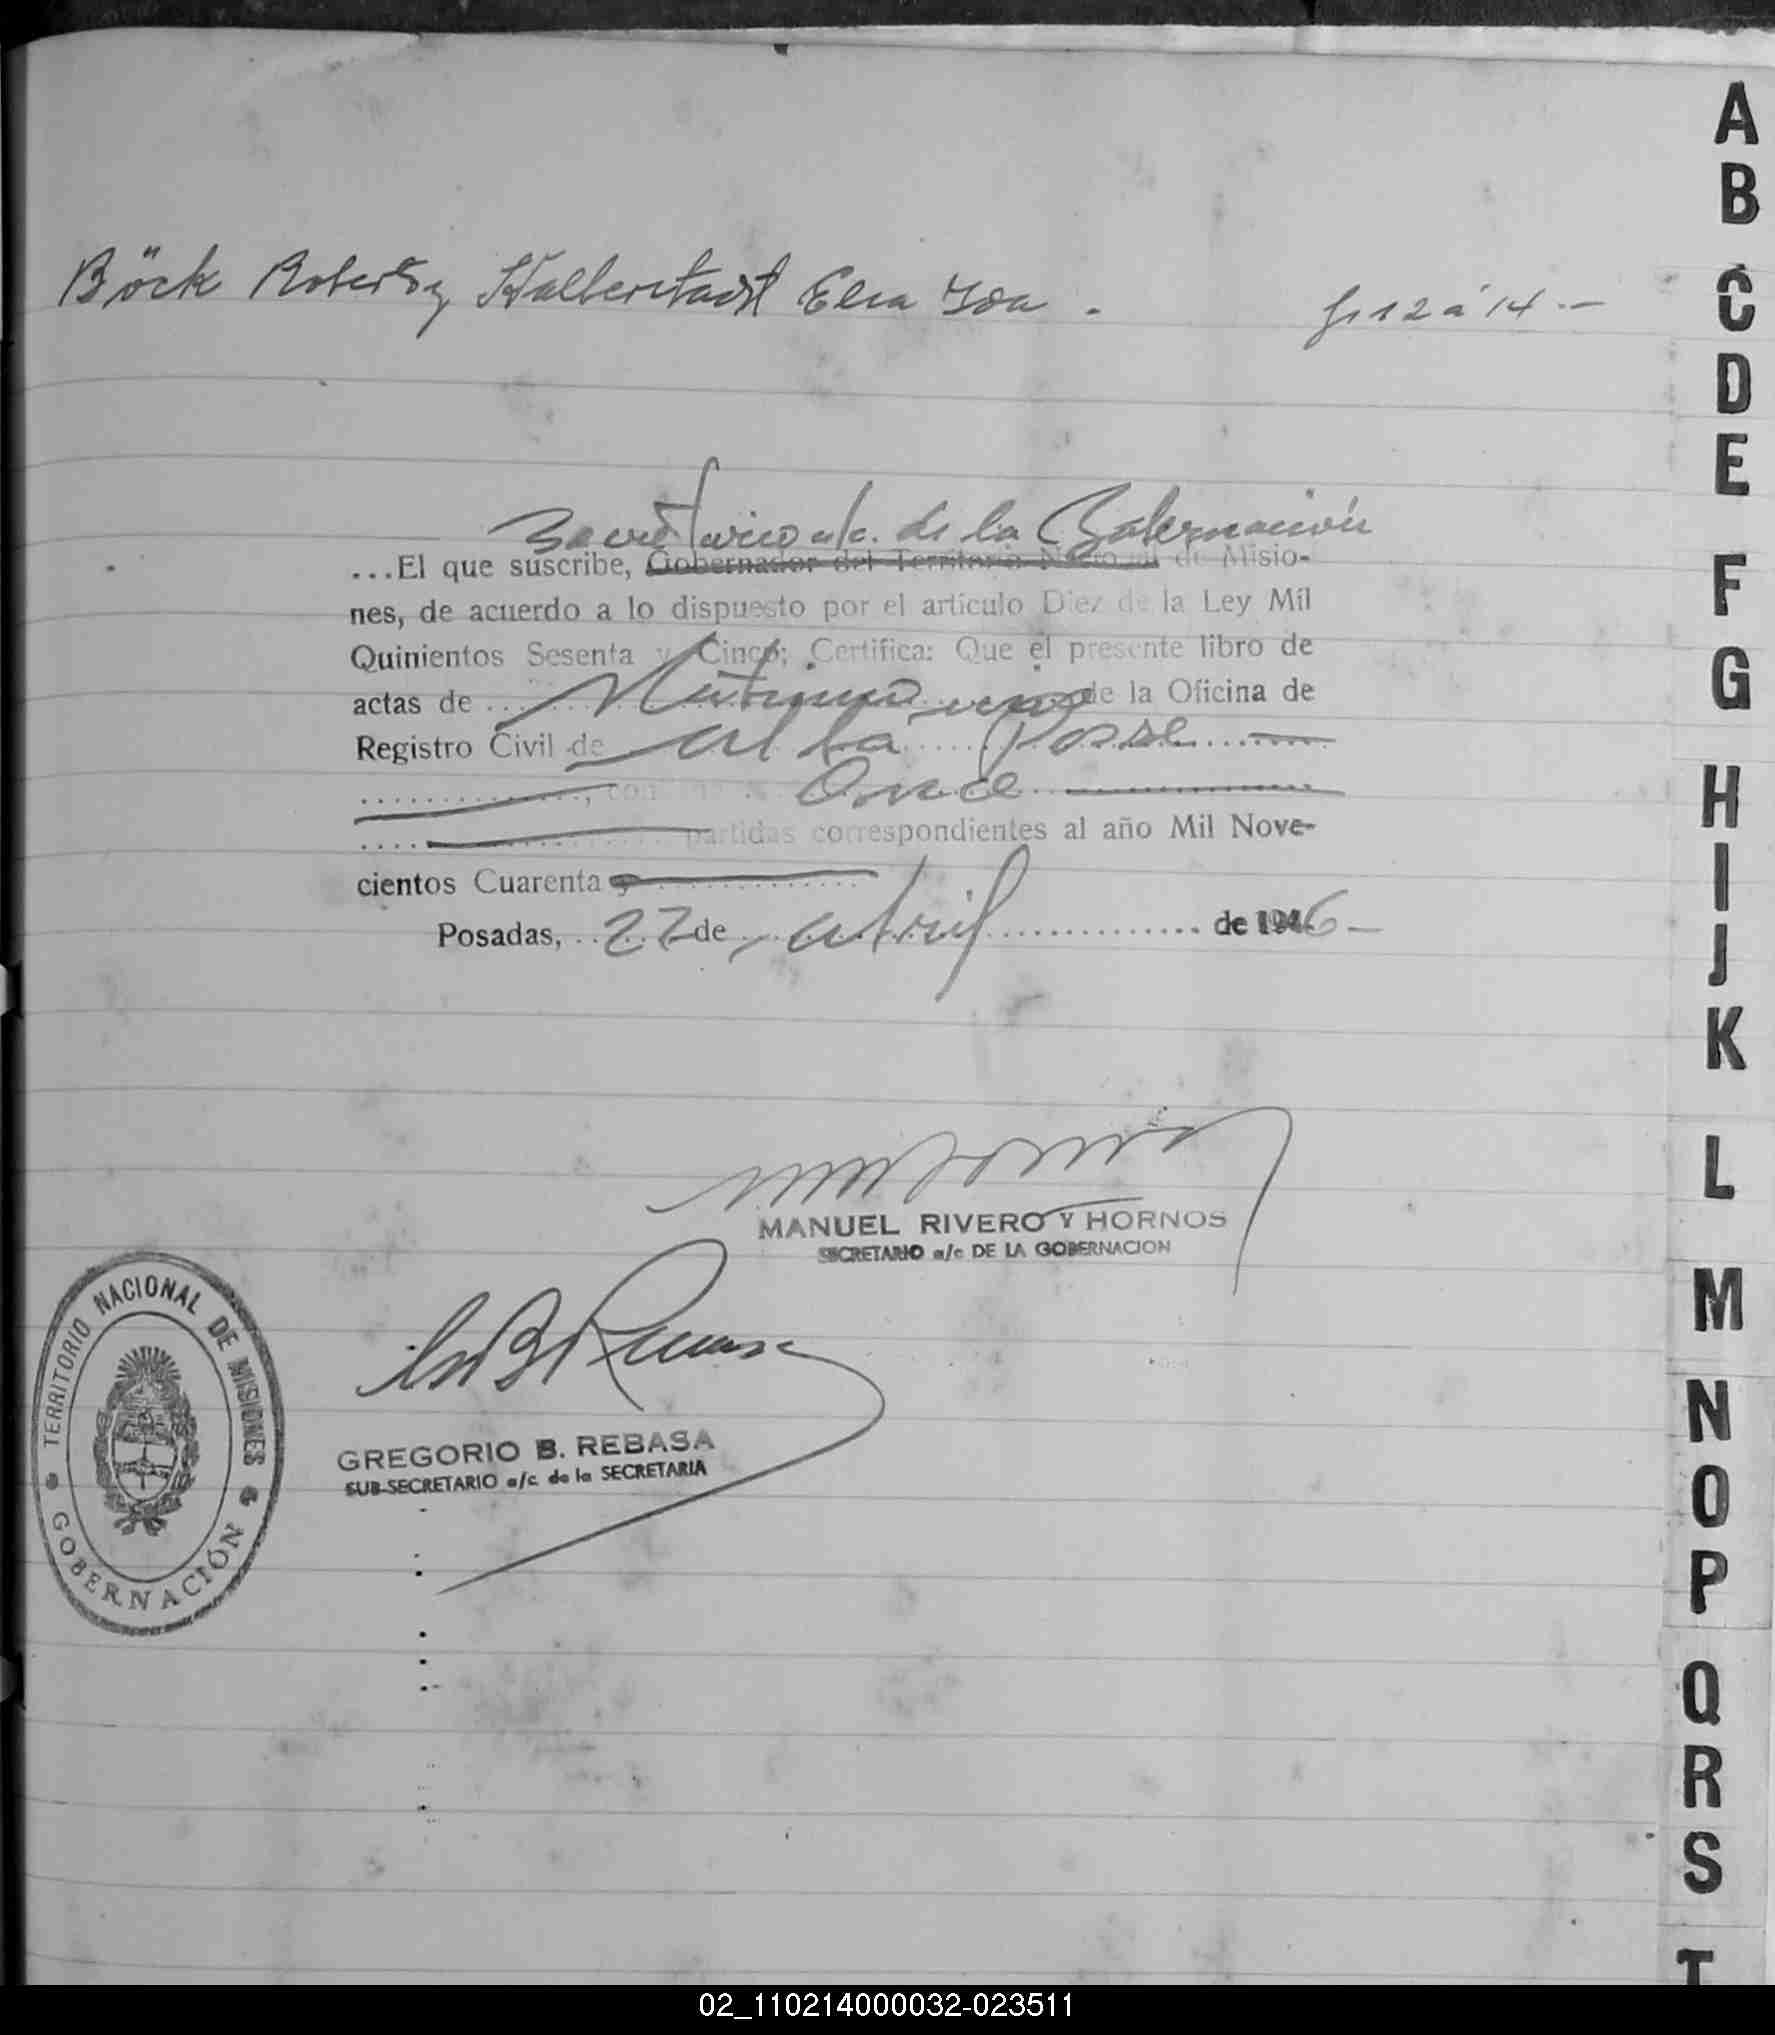 Böck Roberto y Halberstadt Elsa Ida . fs 12 a 14.—
Secretario a/c. de la Gobernación
...El que suscribe, Gobernador del Territorio Nacional de Misio-
nes, de acuerdo a lo dispuesto por el artículo Diez de la Ley Mil
Quinientos Sesenta y Cinco; Certifica: Que el presente libro de
actas de Matrimonios de la Oficina de
Registro Civil de Alba Posse
, contiene Once
partidas correspondientes al año Mil Nove-
cientos Cuarenta y
Posadas, 27 de abril de 1946 —
MANUEL RIVERO Y HORNOS
SECRETARIO a/c DE LA GOBERNACION
GREGORIO B. REBASA
SUB-SECRETARIO a/c. de la SECRETARIA
TERRITORIO NACIONAL DE MISIONES
GOBERNACIÓN
A
B
C
D
E
F
G
H
I
J
K
L
M
N
O
P
Q
R
S
T
02_110214000032-023511